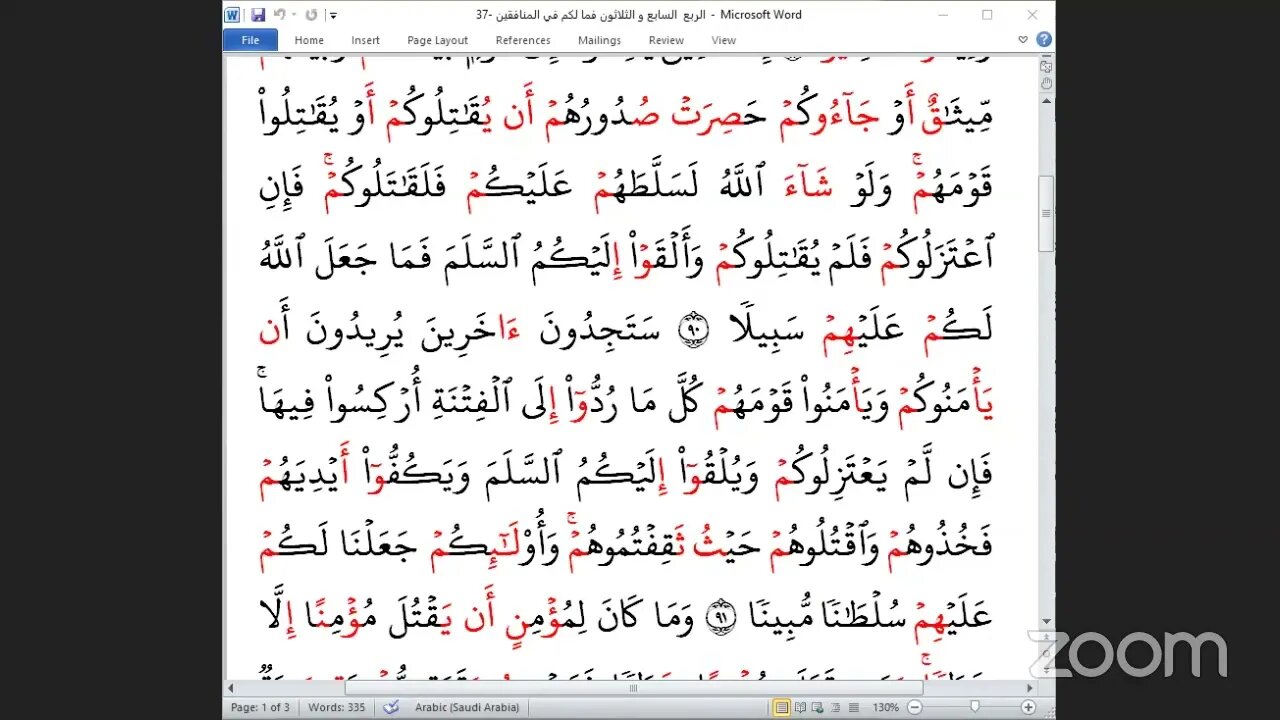 الربع السابع و الثلاثون فما لكم في المنافقين -37 - Microsoft Word
File Home Insert Page Layout References Mailings Review View
مِّيثَٰقٌ أَوۡ جَآءُوكُمۡ حَصِرَتۡ صُدُورُهُمۡ أَن يُقَٰتِلُوكُمۡ أَوۡ يُقَٰتِلُواْ
قَوۡمَهُمۡۚ وَلَوۡ شَآءَ ٱللَّهُ لَسَلَّطَهُمۡ عَلَيۡكُمۡ فَلَقَٰتَلُوكُمۡۚ فَإِنِ
ٱعۡتَزَلُوكُمۡ فَلَمۡ يُقَٰتِلُوكُمۡ وَأَلۡقَوۡاْ إِلَيۡكُمُ ٱلسَّلَمَ فَمَا جَعَلَ ٱللَّهُ
لَكُمۡ عَلَيۡهِمۡ سَبِيلٗا ٩٠ سَتَجِدُونَ ءَاخَرِينَ يُرِيدُونَ أَن
يَأۡمَنُوكُمۡ وَيَأۡمَنُواْ قَوۡمَهُمۡ كُلَّ مَا رُدُّوٓاْ إِلَى ٱلۡفِتۡنَةِ أُرۡكِسُواْ فِيهَاۚ
فَإِن لَّمۡ يَعۡتَزِلُوكُمۡ وَيُلۡقُوٓاْ إِلَيۡكُمُ ٱلسَّلَمَ وَيَكُفُّوٓاْ أَيۡدِيَهُمۡ
فَخُذُوهُمۡ وَٱقۡتُلُوهُمۡ حَيۡثُ ثَقِفۡتُمُوهُمۡۚ وَأُوْلَٰٓئِكُمۡ جَعَلۡنَا لَكُمۡ
عَلَيۡهِمۡ سُلۡطَٰنٗا مُّبِينٗا ٩١ وَمَا كَانَ لِمُؤۡمِنٍ أَن يَقۡتُلَ مُؤۡمِنًا إِلَّا
zoom
Page: 1 of 3 Words: 335 Arabic (Saudi Arabia) 130%